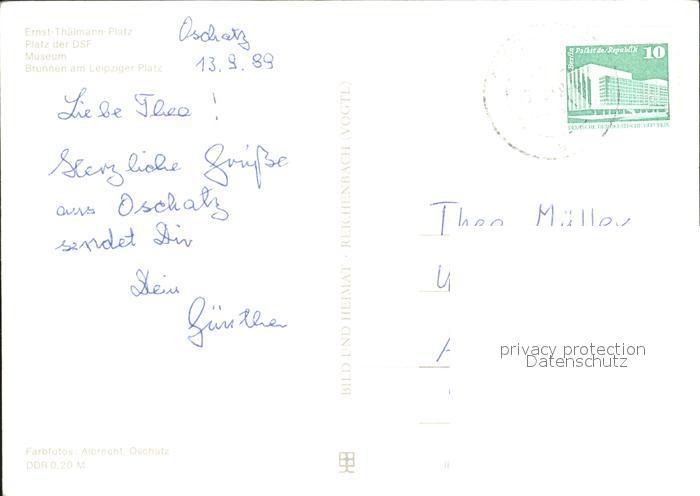 Ernst-Thälmann-Platz
Platz der DSF
Museum
Brunnen am Leipziger Platz
Oschatz
13.9.89
Liebe Thea!
Herzliche Grüße
aus Oschatz
sendet Dir
Dein
Günther
Farbfotos: Albrecht, Oschatz
DDR 0,20 M
BILD UND HEIMAT · REICHENBACH (VOGTL)
Berlin Palast der Republik
10
DEUTSCHE DEMOKRATISCHE REPUBLIK
Theo Müller
privacy protection
Datenschutz